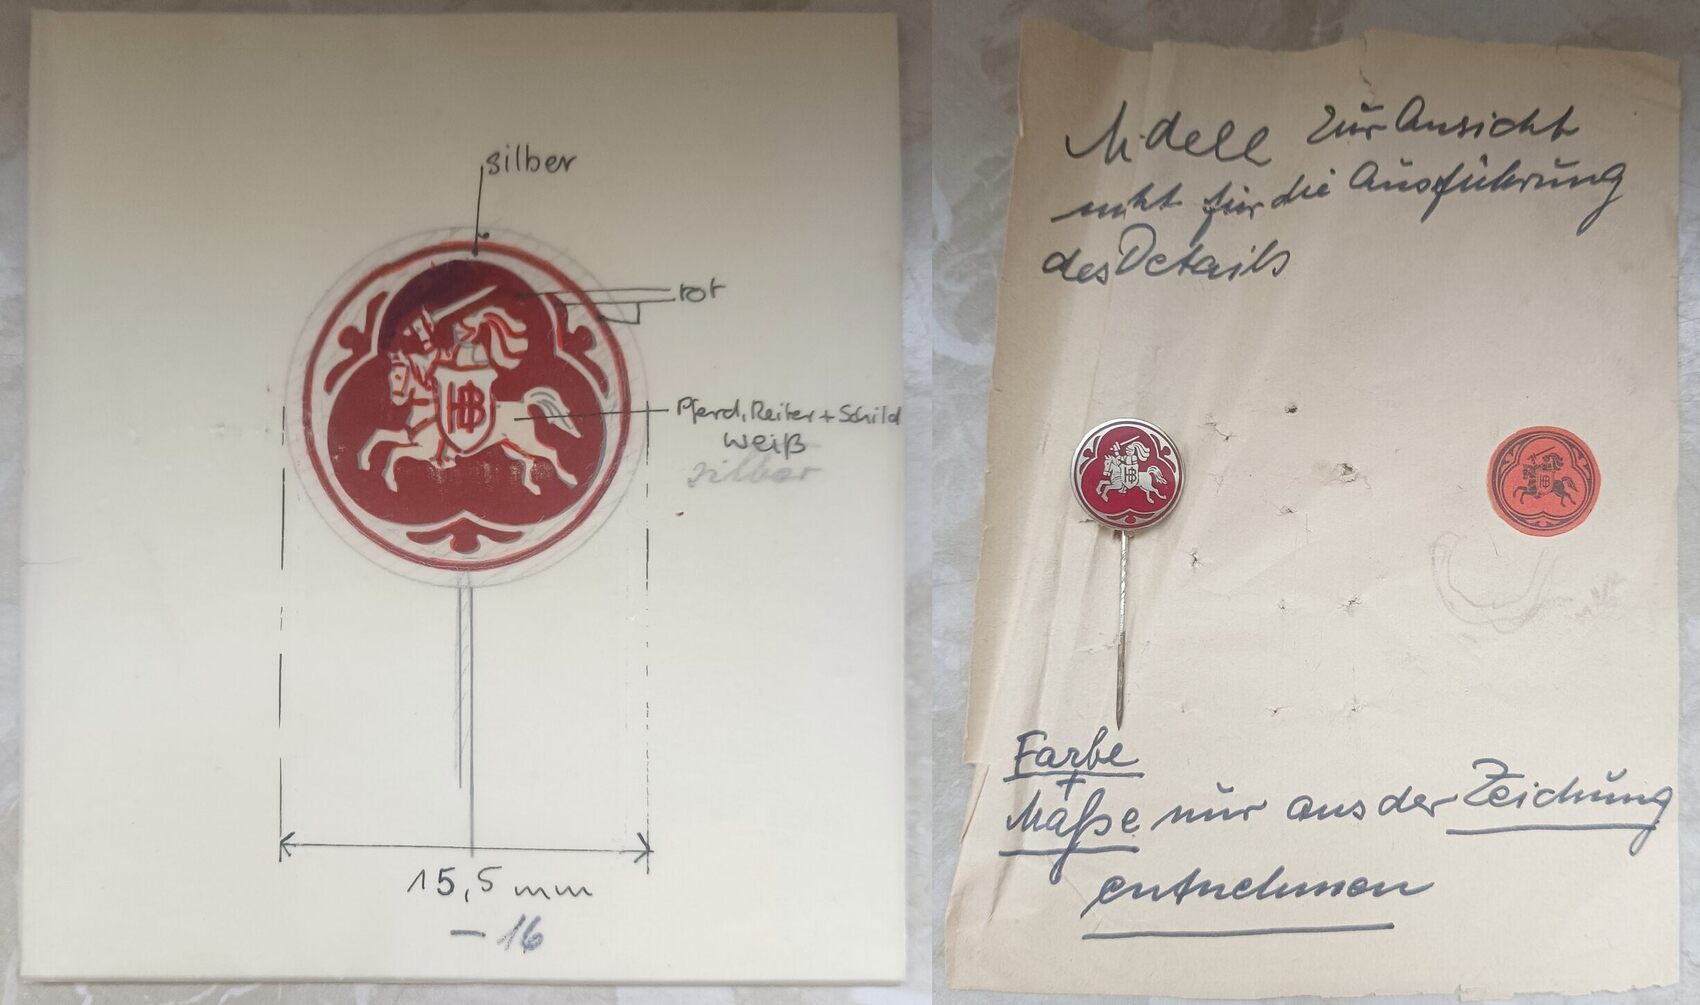 silber
rot
Pferd, Reiter + Schild
weiß
silber
HB
15,5 mm
– 16
Modell zur Ansicht
nicht für die Ausführung
des Details
HB
HB
Farbe
+
Maße nur aus der Zeichnung
entnehmen